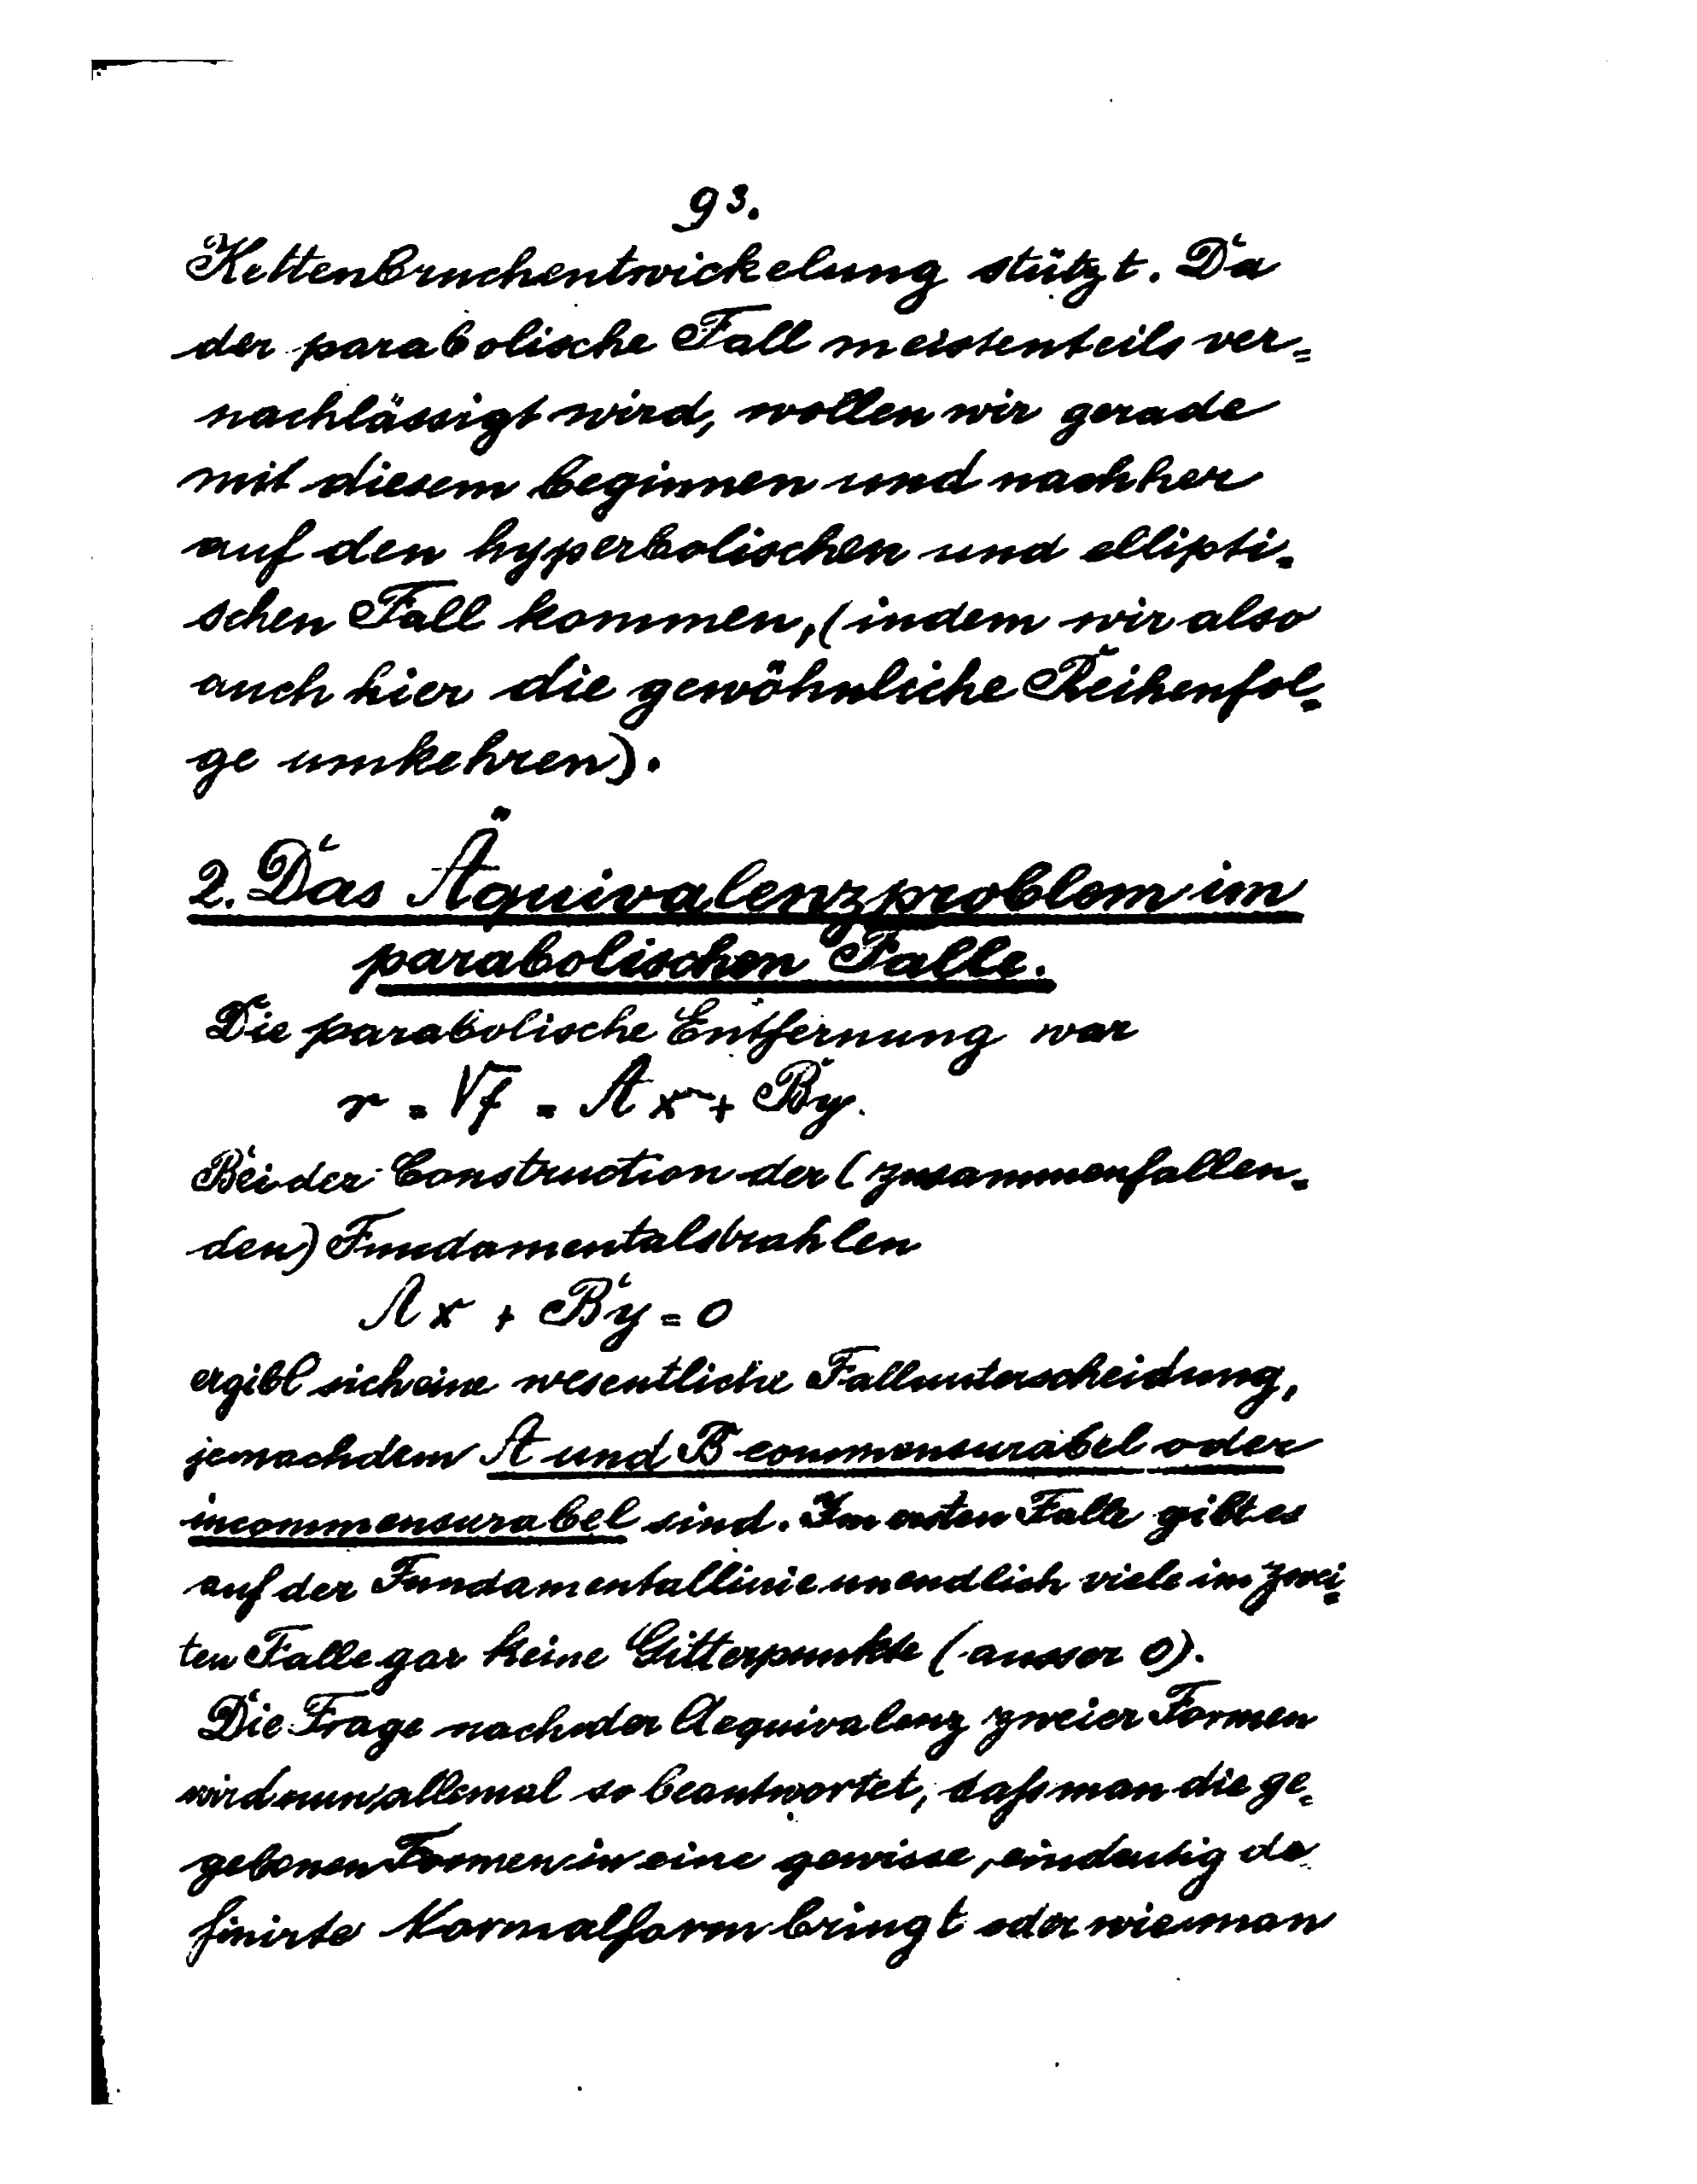 93.
Kettenbruchentwickelung stützt. Da
der parabolische Fall meistenteils ver=
nachlässigt wird, wollen wir gerade
mit diesem beginnen und nachher
auf den hyperbolischen und ellipti=
schen Fall kommen, (indem wir also
auch hier die gewöhnliche Reihenfol=
ge umkehren).
2. Das Äquivalenzproblem im
parabolischen Falle.
Die parabolische Entfernung war
r = √f = Ax + By.
Bei der Construction der (zusammenfallen=
den) Fundamentalstrahlen
Ax + By = 0
ergibt sich eine wesentliche Fallunterscheidung,
jenachdem A und B commensurabel oder
incommensurabel sind. Im ersten Falle gibt es
auf der Fundamentallinie unendlich viele im zwei=
ten Falle gar keine Gitterpunkte (ausser 0).
Die Frage nach der Aequivalenz zweier Formen
wird nun allemal so beantwortet, daß man die ge=
gebenen Formen in eine gewisse, eindeutig de
finirte Normalform bringt oder wie man